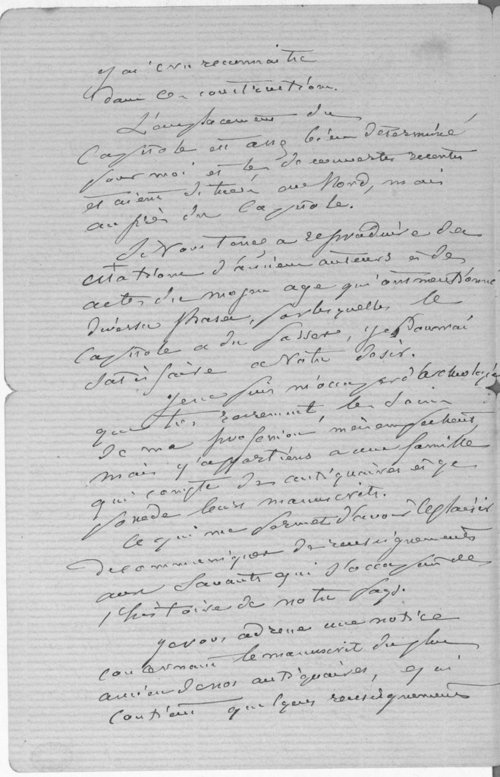 j'ai cru reconnaitre
dans ces constructions.
L'emplacement du
Capitole est assez bien déterminé
pour moi et les découvertes recentes
étaient situées au Nord, mais
auprès du Capitole.
Si Vous tenez a reproduire des
citations d'anciens auteurs et des
actes du moyen age qui ont mentionné
diverses phases, par lesquelles le
Capitole a du passer, je pourrai
satisfaire a Votre désir.
Je ne puis m'occuper d'Archeologie
que très rarement, les soins
de ma profession m'en empechant,
mais j'appartiens a une famille
qui compte des antiquaires et je
possede leurs manuscrits.
Ce qui me permet d'avoir le plaisir
de communiquer des renseignements
aux Savants qui s'occupent de
l'histoire de notre Pays.
Je vous adresse une notice
concernant le manuscrit du plus
ancien de nos antiquaires, qui
contient quelques renseignements